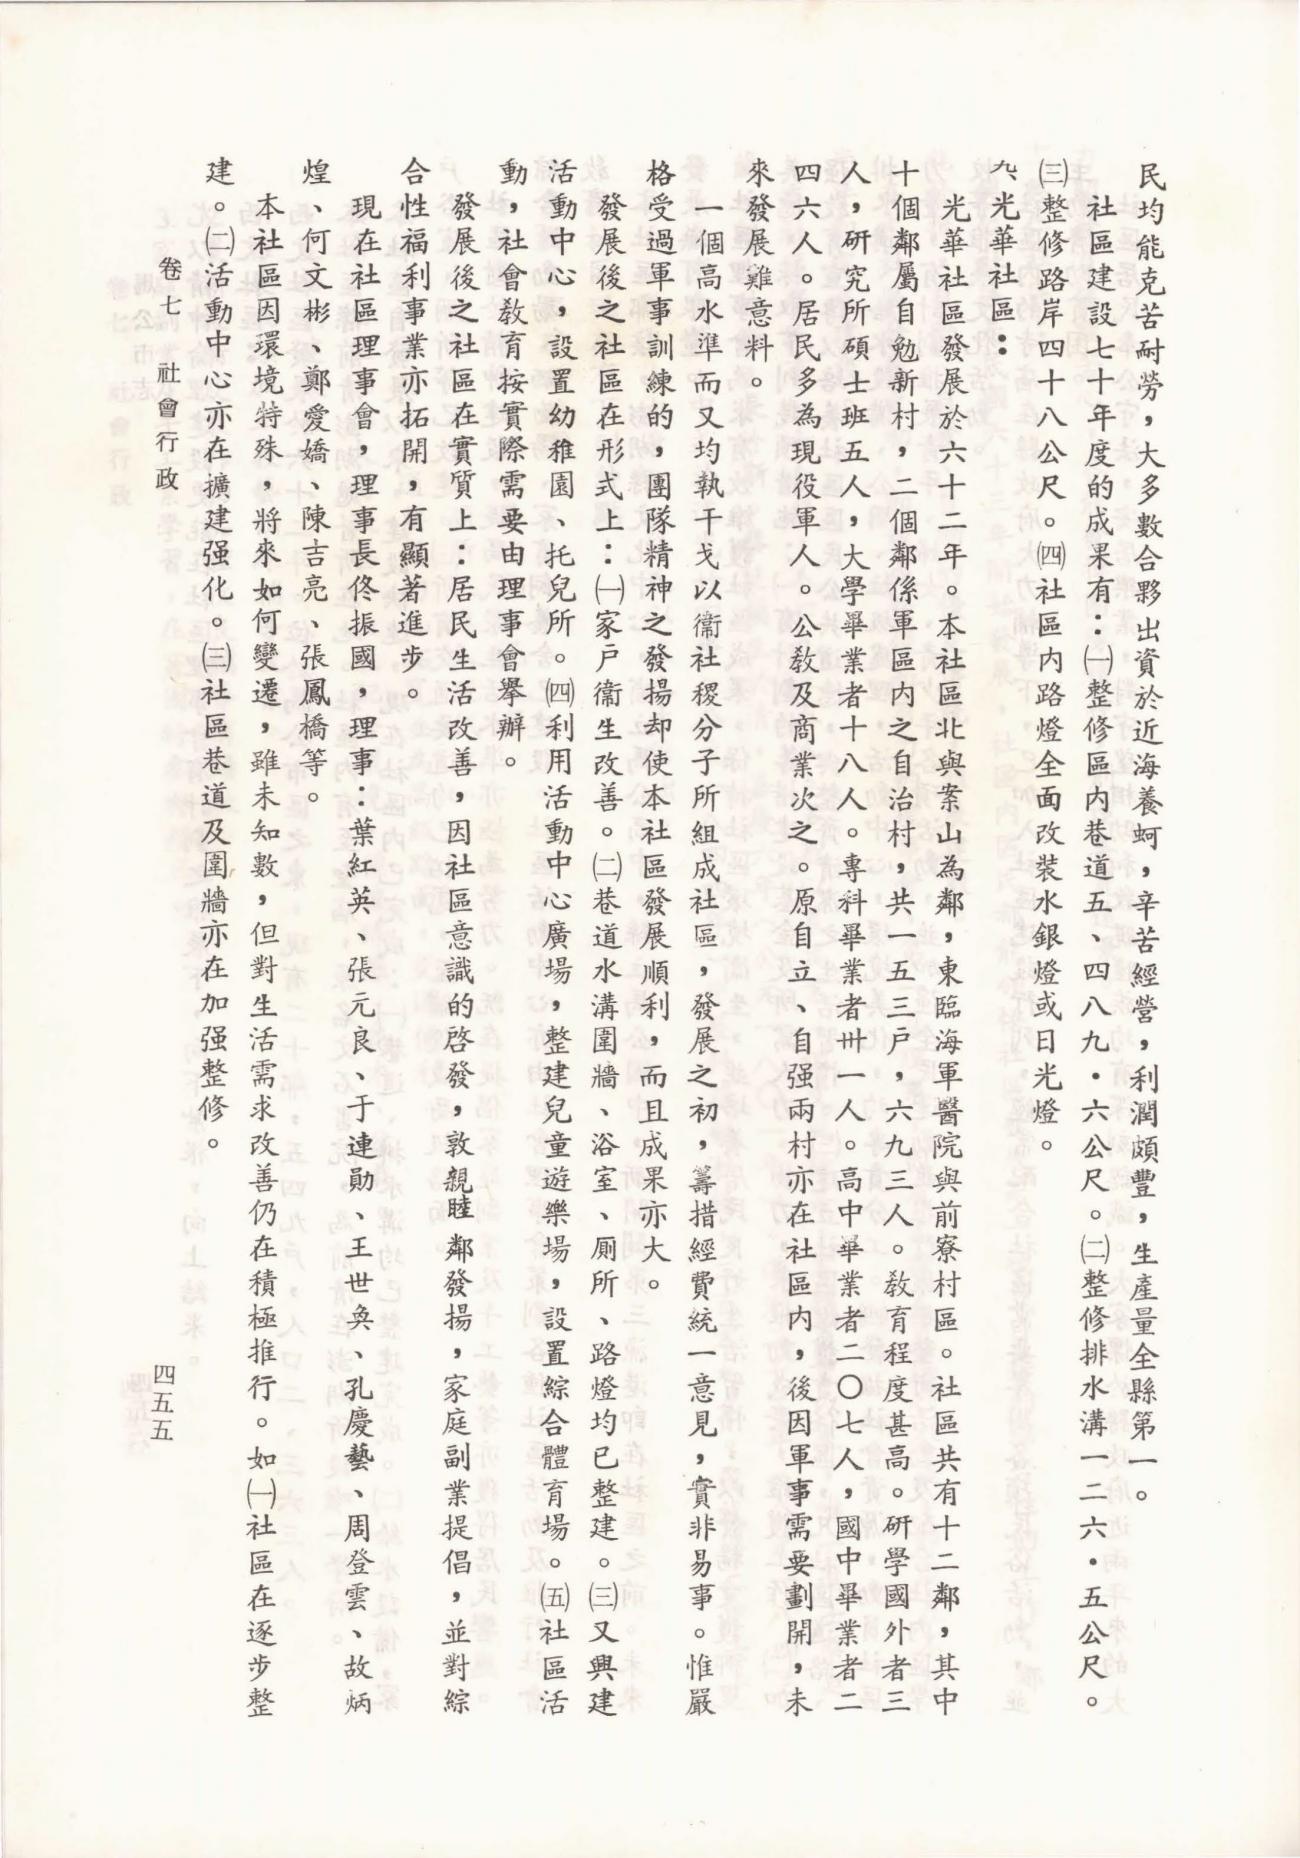 民均能克苦耐勞，大多數合夥出資於近海養蚵，辛苦經營，利潤頗豐，生產量全縣第一。
社區建設七十年度的成果有：㈠整修區內巷道五、四八九・六公尺。㈡整修排水溝一二六・五公尺。
㈢整修路岸四十八公尺。㈣社區内路燈全面改裝水銀燈或日光燈。
九、光華社區：
光華社區發展於六十二年。本社區北與案山為鄰，東臨海軍醫院與前寮村區。社區共有十二鄰，其中
十個鄰屬自勉新村，二個鄰係軍區內之自治村，共一五三戶，六九三人。教育程度甚高。研學國外者三
人，研究所碩士班五人，大學畢業者十八人。專科畢業者卅一人。高中畢業者二〇七人，國中畢業者二
四六人。居民多為現役軍人。公教及商業次之。原自立、自强兩村亦在社區内，後因軍事需要劃開，未
來發展難意料。
一個高水準而又均執干戈以衞社稷分子所組成社區，發展之初，籌措經費統一意見，實非易事。惟嚴
格受過軍事訓練的，團隊精神之發揚却使本社區發展順利，而且成果亦大。
發展後之社區在形式上：㈠家戶衞生改善。㈡巷道水溝圍牆、浴室、厠所、路燈均已整建。㈢又興建
活動中心，設置幼稚園、托兒所。㈣利用活動中心廣場，整建兒童遊樂場，設置綜合體育場。㈤社區活
動，社會教育按實際需要由理事會舉辦。
發展後之社區在實質上：居民生活改善，因社區意識的啓發，敦親睦鄰發揚，家庭副業提倡，並對綜
合性福利事業亦拓開，有顯著進步。
現在社區理事會，理事長佟振國，理事：葉紅英、張元良、于連勛、王世奐、孔慶藝、周登雲、故炳
煌、何文彬、鄭愛嬌、陳吉亮、張鳳橋等。
本社區因環境特殊，將來如何變遷，雖未知數，但對生活需求改善仍在積極推行。如㈠社區在逐步整
建。㈡活動中心亦在擴建强化。㈢社區巷道及圍牆亦在加强整修。
卷七　社會行政
四五五